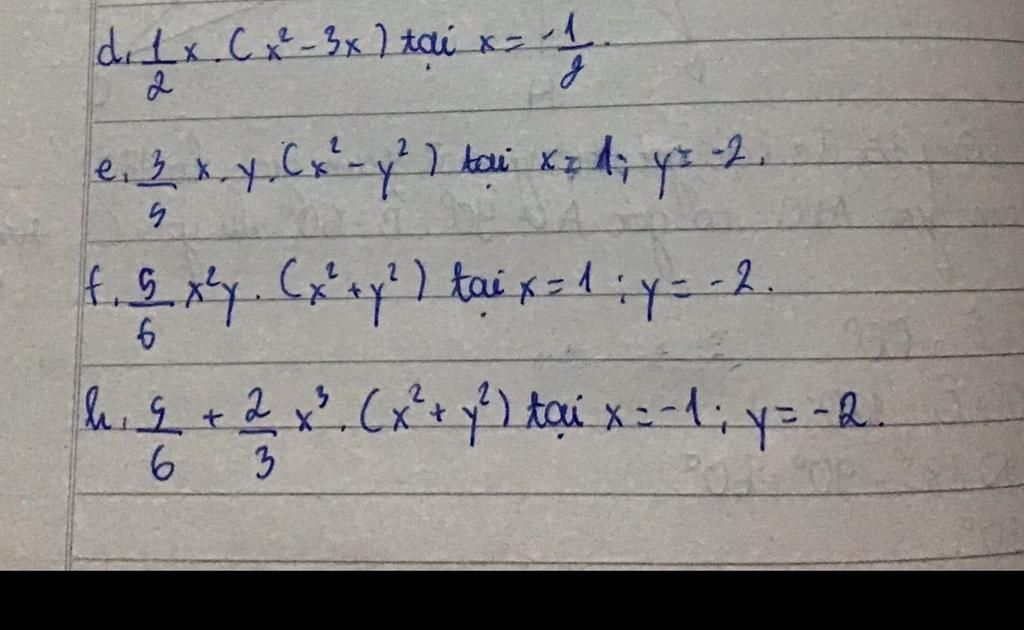 d, 1/2 x . (x² - 3x) tại x = -1/2.
e, 3/5 x . y . (x² - y²) tại x = 1; y = -2.
f, 5/6 x²y . (x² + y²) tại x = 1 ; y = -2.
h, 5/6 + 2/3 x³ . (x² + y²) tại x = -1 ; y = -2.